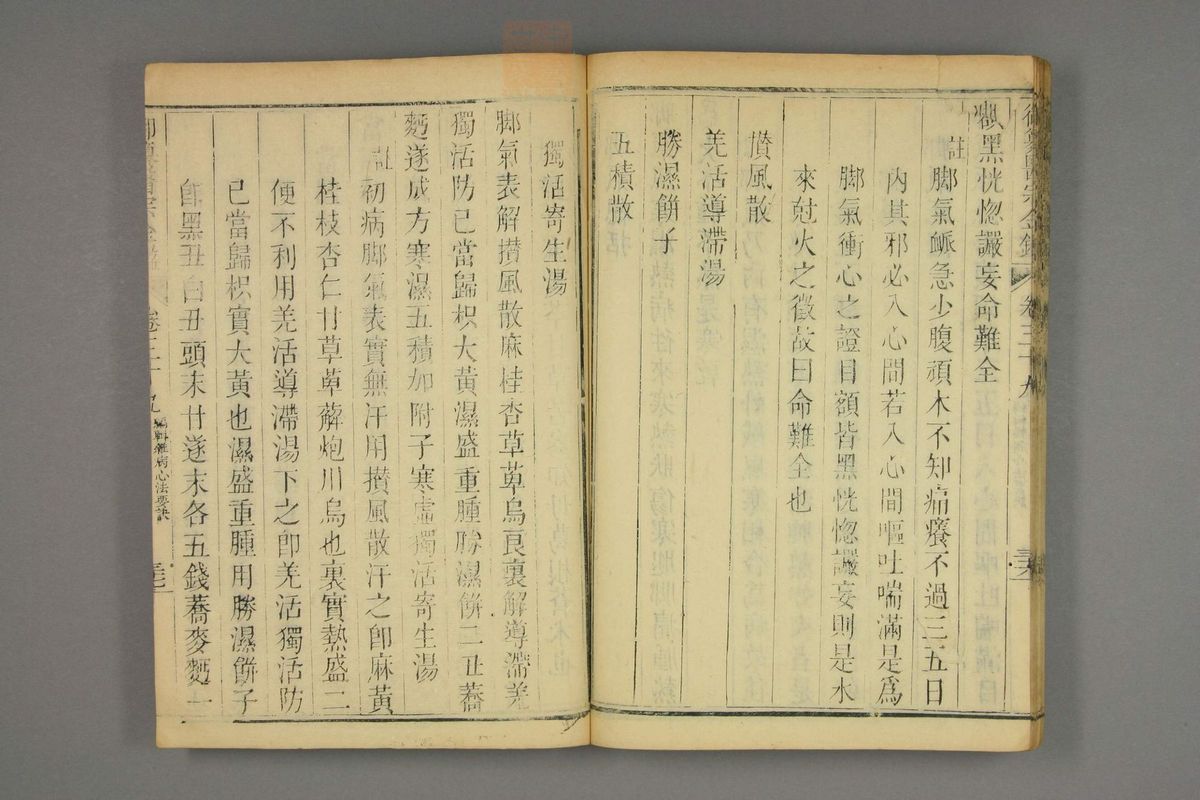 御纂醫宗金鑑 卷三十九
額黑恍惚譫妄命難全
註
脚氣脈急少腹頑木不知痛癢不過三五日
內其邪必入心間若入心間嘔吐喘滿是爲
脚氣衝心之證目額皆黑恍惚譫妄則是水
來尅火之徵故曰命難全也
攅風散
羌活導滯湯
勝濕餅子
五積散
獨活寄生湯
脚氣表解攅風散麻桂杏草萆烏良裏解導滯羌
獨活防已當歸枳大黃濕盛重腫勝濕餅二丑蕎
麪遂成方寒濕五積加附子寒虛獨活寄生湯
註
初病脚氣表實無汗用攅風散汗之卽麻黃
桂枝杏仁甘草萆薢炮川烏也裏實熱盛二
便不利用羌活導滯湯下之卽羌活獨活防
已當歸枳實大黃也濕盛重腫用勝濕餅子
卽黑丑白丑頭末甘遂末各五錢蕎麥麪一
編輯雜病心法要訣